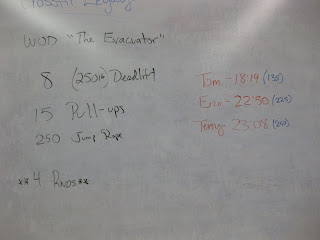 Crossfit Legacy
WOD "The Evacuator"
8 (250lb) Deadlift
15 Pull-ups
250 Jump Rope
**4 Rnds**
Tim - 18:19 (135)
Eric - 22:50 (225)
Terry - 23:08 (250)